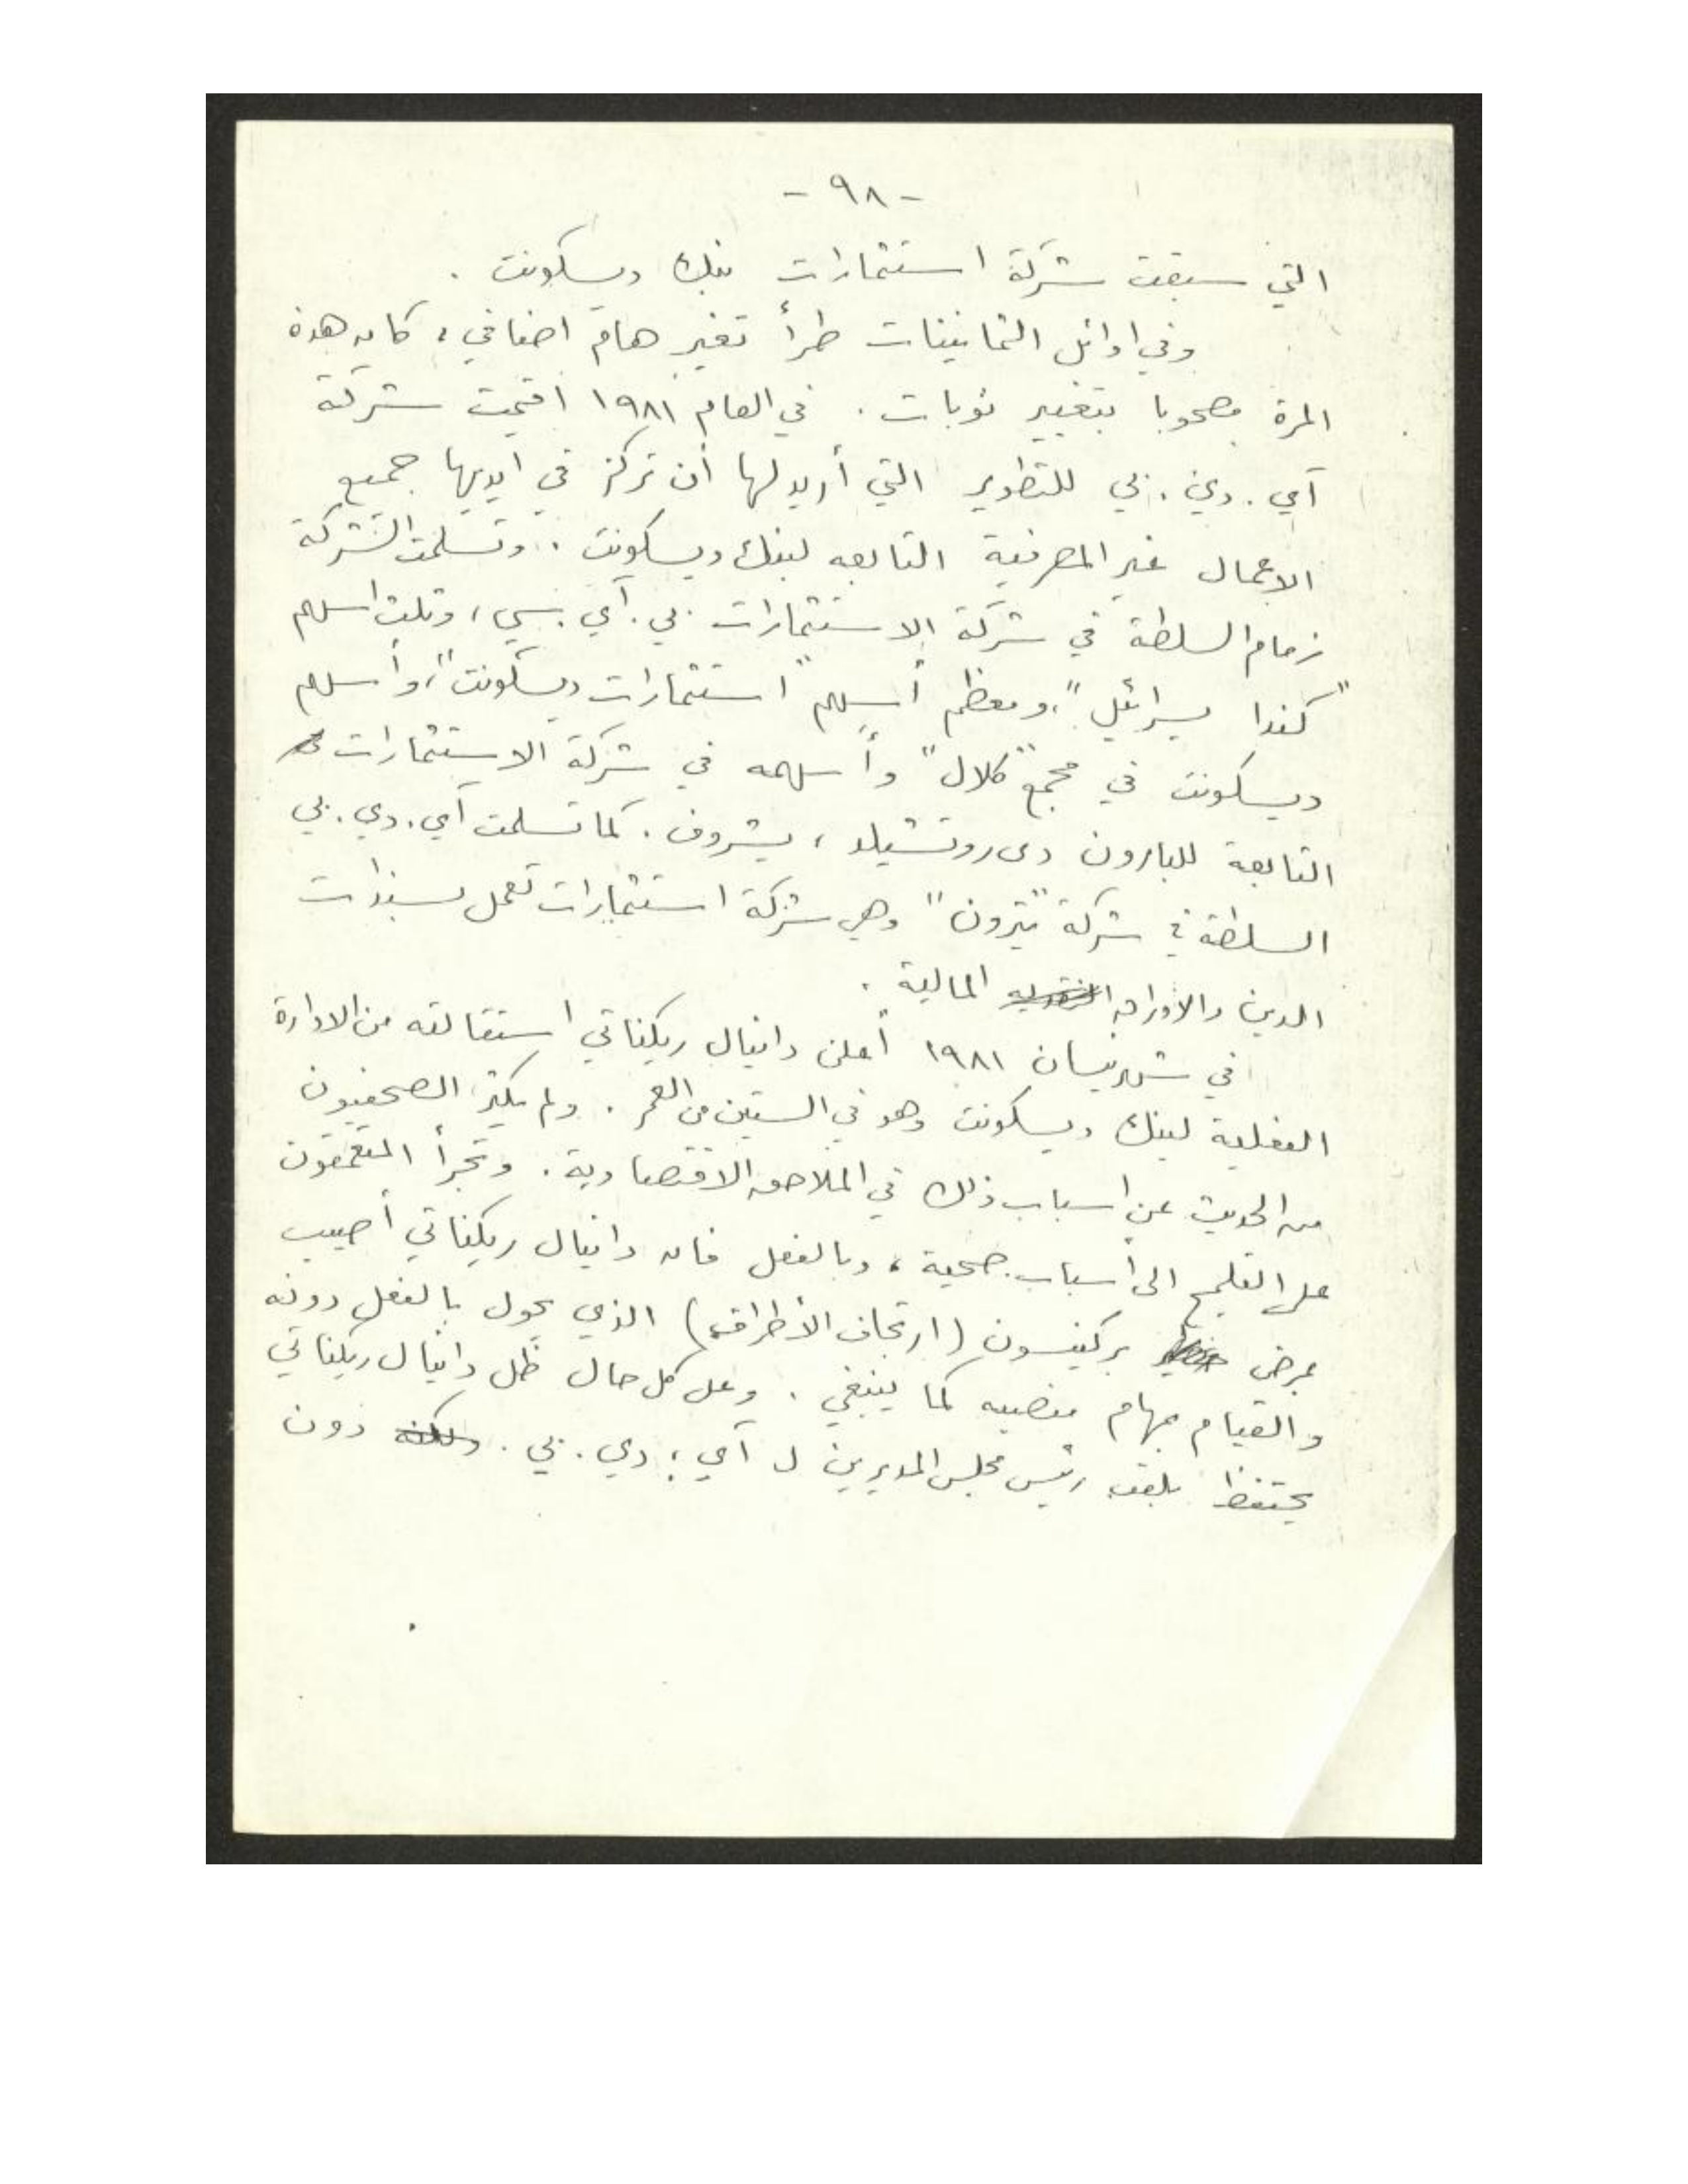 - ٩٨ -
التي سبقت شركة استثمارات بنك ديسكونت .
وفي اوائل الثمانينات طرأ تغير هام اضافي ، كان هذه
المرة مصحوبا بتغيير نوبات . في العام ١٩٨١ اقيمت شركة
آي . دي . بي للتطوير التي أريد لها أن تركز في ايديها جميع
الاعمال غير المصرفية التابعه لبنك ديسكونت . وتسلمت الشركة
زمام السلطة في شركة الاستثمارات بي . آي . سي ، وثلث اسهم
"كندا يسرائيل" ، ومعظم أسهم "استثمارات ديسكونت" ، وأسهم
ديسكونت في مجمع "كلال" وأسهمه في شركة الاستثمارات
التابعة للبارون دي روتشيلد ، يشروف . كما تسلمت آي . دي . بي
السلطة في شركة "تيرون" وهي شركة استثمارات تعمل بسندات
الدين والاوراق المالية .
في شهر نيسان ١٩٨١ أعلن دانيال ريكناتي استقالته من الادارة
الفعلية لبنك ديسكونت وهو في الستين من العمر . ولم يكثر الصحفيون
من الحديث عن اسباب ذلك في الملاحق الاقتصادية . وتجرأ المتعمقون
على التلميح الى أسباب صحية ، وبالفعل فان دانيال ريكناتي أصيب
بمرض بركنسون (ارتجاف الأطراف) الذي يحول بالفعل دونه
والقيام بمهام منصبه كما ينبغي . وعلى كل حال ظل دانيال ريكناتي
يحتفظ بلقب رئيس مجلس المديرين ل آي . دي . بي . دون